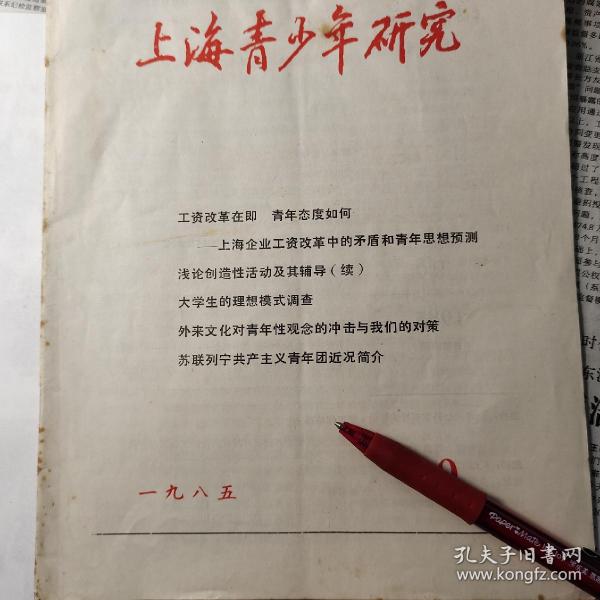 上海青少年研究
工资改革在即 青年态度如何
——上海企业工资改革中的矛盾和青年思想预测
浅论创造性活动及其辅导(续)
大学生的理想模式调查
外来文化对青年性观念的冲击与我们的对策
苏联列宁共产主义青年团近况简介
一九八五
Paper Mate
孔夫子旧书网
www.kongfz.com